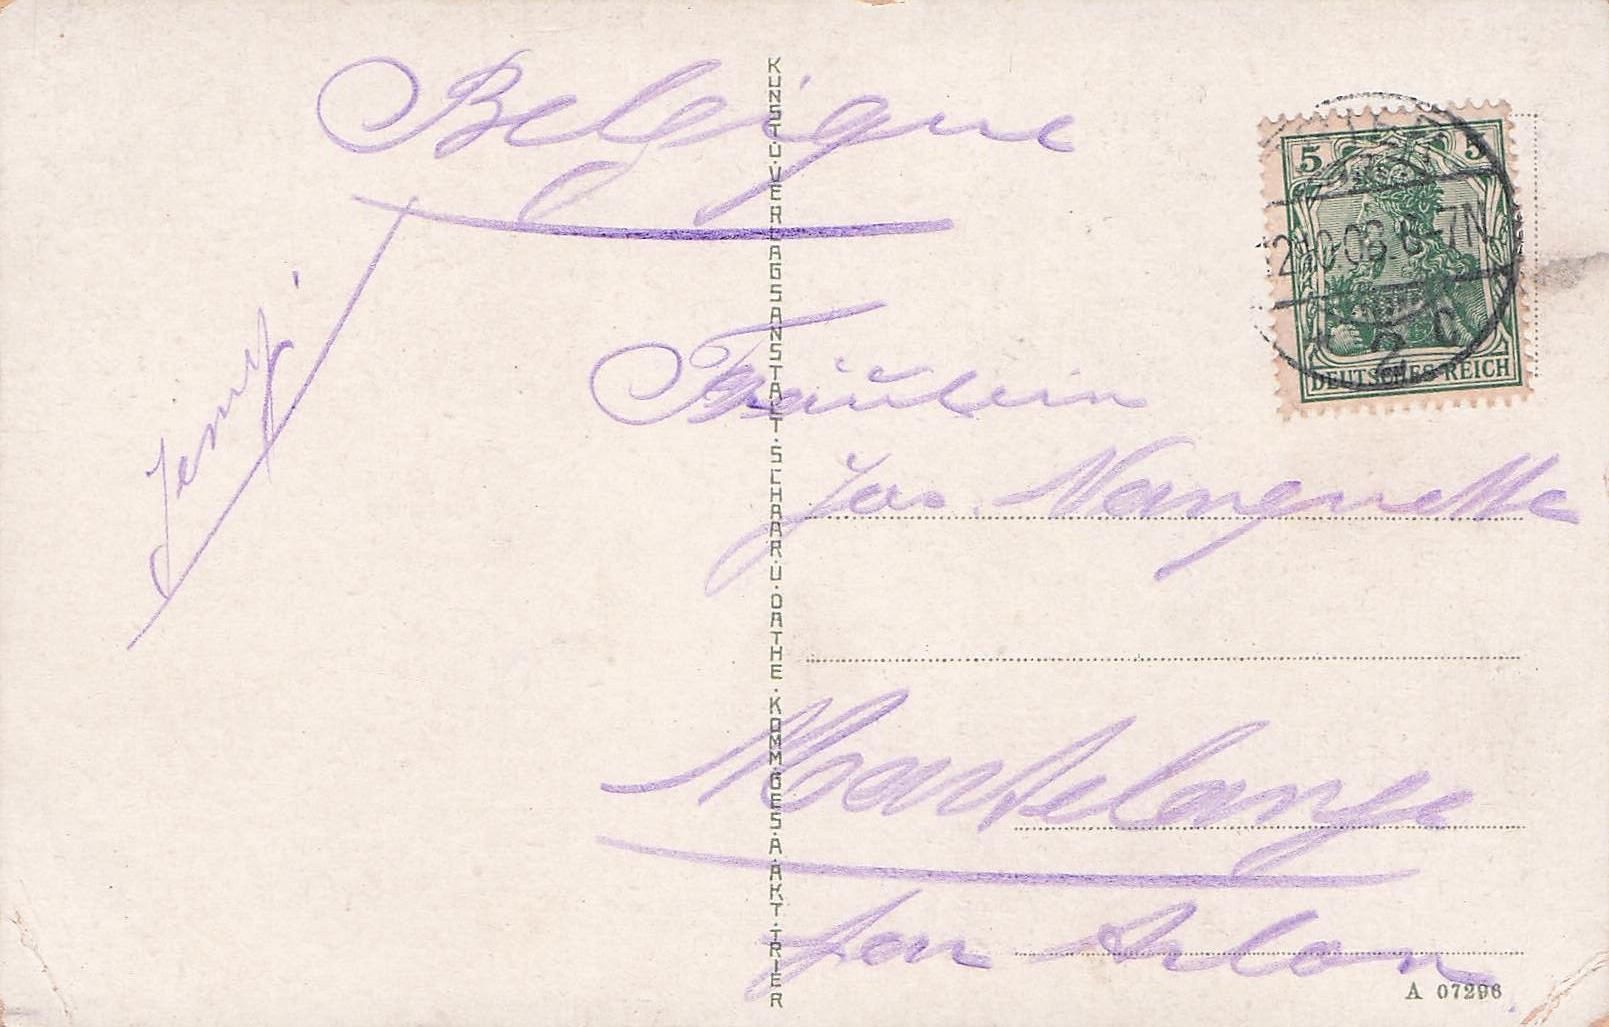 Belgique
Jenny
Fräulein
Jos. Nanquette
Martelange
par Arlon
KUNST·U·VERLAGSANSTALT·SCHAAR·U·DATHE·KOMM·GES·A·AKT·TRIER
5 5
DEUTSCHES REICH
6-7N
A 07296